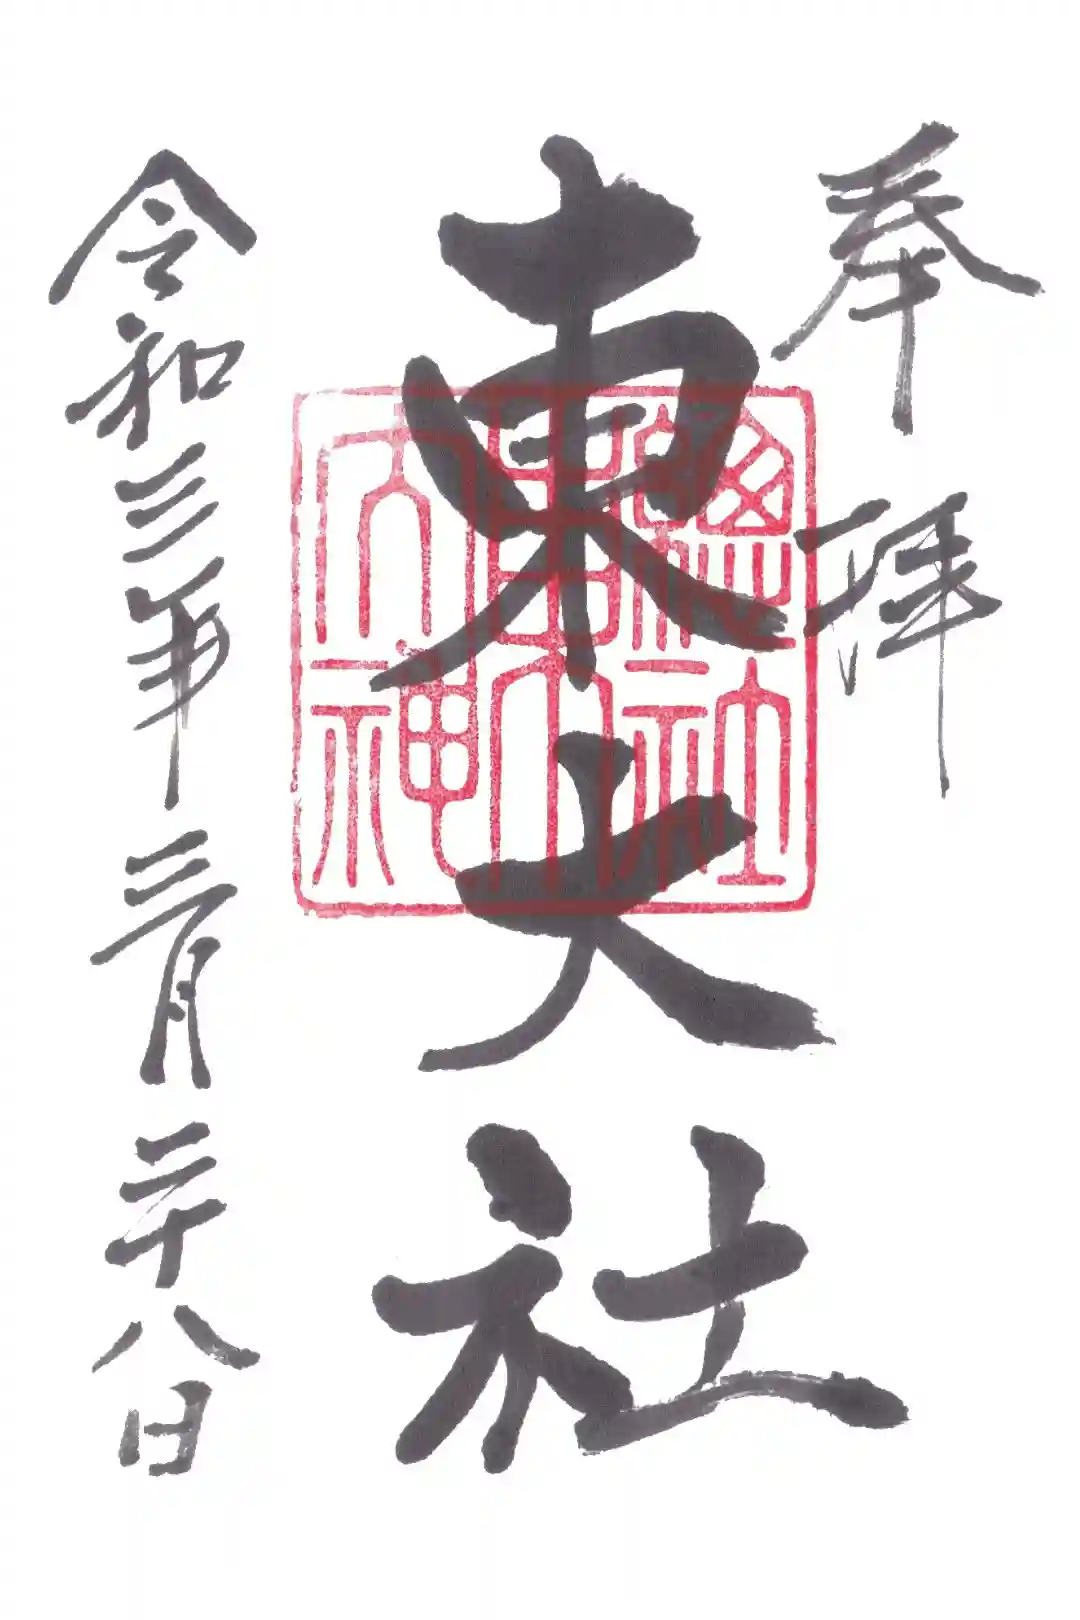 奉拝
總社東大神
東大社
令和三年三月二十八日